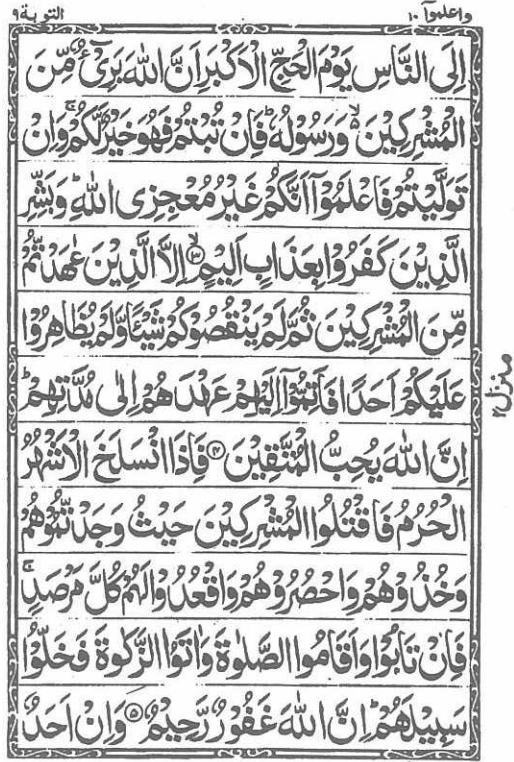 واعلموٓا ١٠
التوبة ٩
اِلَى النَّاسِ يَوۡمَ الۡحَجِّ الۡاَكۡبَرِ اَنَّ اللّٰهَ بَرِىۡٓءٌ مِّنَ
الۡمُشۡرِكِيۡنَ ۙ۬ وَ رَسُوۡلُهٗ ؕ فَاِنۡ تُبۡتُمۡ فَهُوَ خَيۡرٌ لَّكُمۡ ۚ وَاِنۡ
تَوَلَّيۡتُمۡ فَاعۡلَمُوۡۤا اَنَّكُمۡ غَيۡرُ مُعۡجِزِى اللّٰهِ ؕ وَبَشِّرِ
الَّذِيۡنَ كَفَرُوۡا بِعَذَابٍ اَلِيۡمٍ ۙ‏﴿۳﴾ اِلَّا الَّذِيۡنَ عٰهَدتُّمۡ
مِّنَ الۡمُشۡرِكِيۡنَ ثُمَّ لَمۡ يَنۡقُصُوۡكُمۡ شَيۡـًٔا وَّلَمۡ يُظَاهِرُوۡا
عَلَيۡكُمۡ اَحَدًا فَاَتِمُّوۡۤا اِلَيۡهِمۡ عَهۡدَهُمۡ اِلٰى مُدَّتِهِمۡ ؕ
اِنَّ اللّٰهَ يُحِبُّ الۡمُتَّقِيۡنَ ﴿۴﴾ فَاِذَا انْسَلَخَ الۡاَشۡهُرُ
الۡحُـرُمُ فَاقۡتُلُوا الۡمُشۡرِكِيۡنَ حَيۡثُ وَجَدْتُّمُوۡهُمۡ
وَخُذُوۡهُمۡ وَاحۡصُرُوۡهُمۡ وَاقۡعُدُوۡا لَهُمۡ كُلَّ مَرۡصَدٍ ۚ
فَاِنۡ تَابُوۡا وَاَقَامُوا الصَّلٰوةَ وَاٰتَوُا الزَّكٰوةَ فَخَلُّوۡا
سَبِيۡلَهُمۡ ؕ اِنَّ اللّٰهَ غَفُوۡرٌ رَّحِيۡمٌ ﴿۵﴾ وَاِنۡ اَحَدٌ
منزل ۲